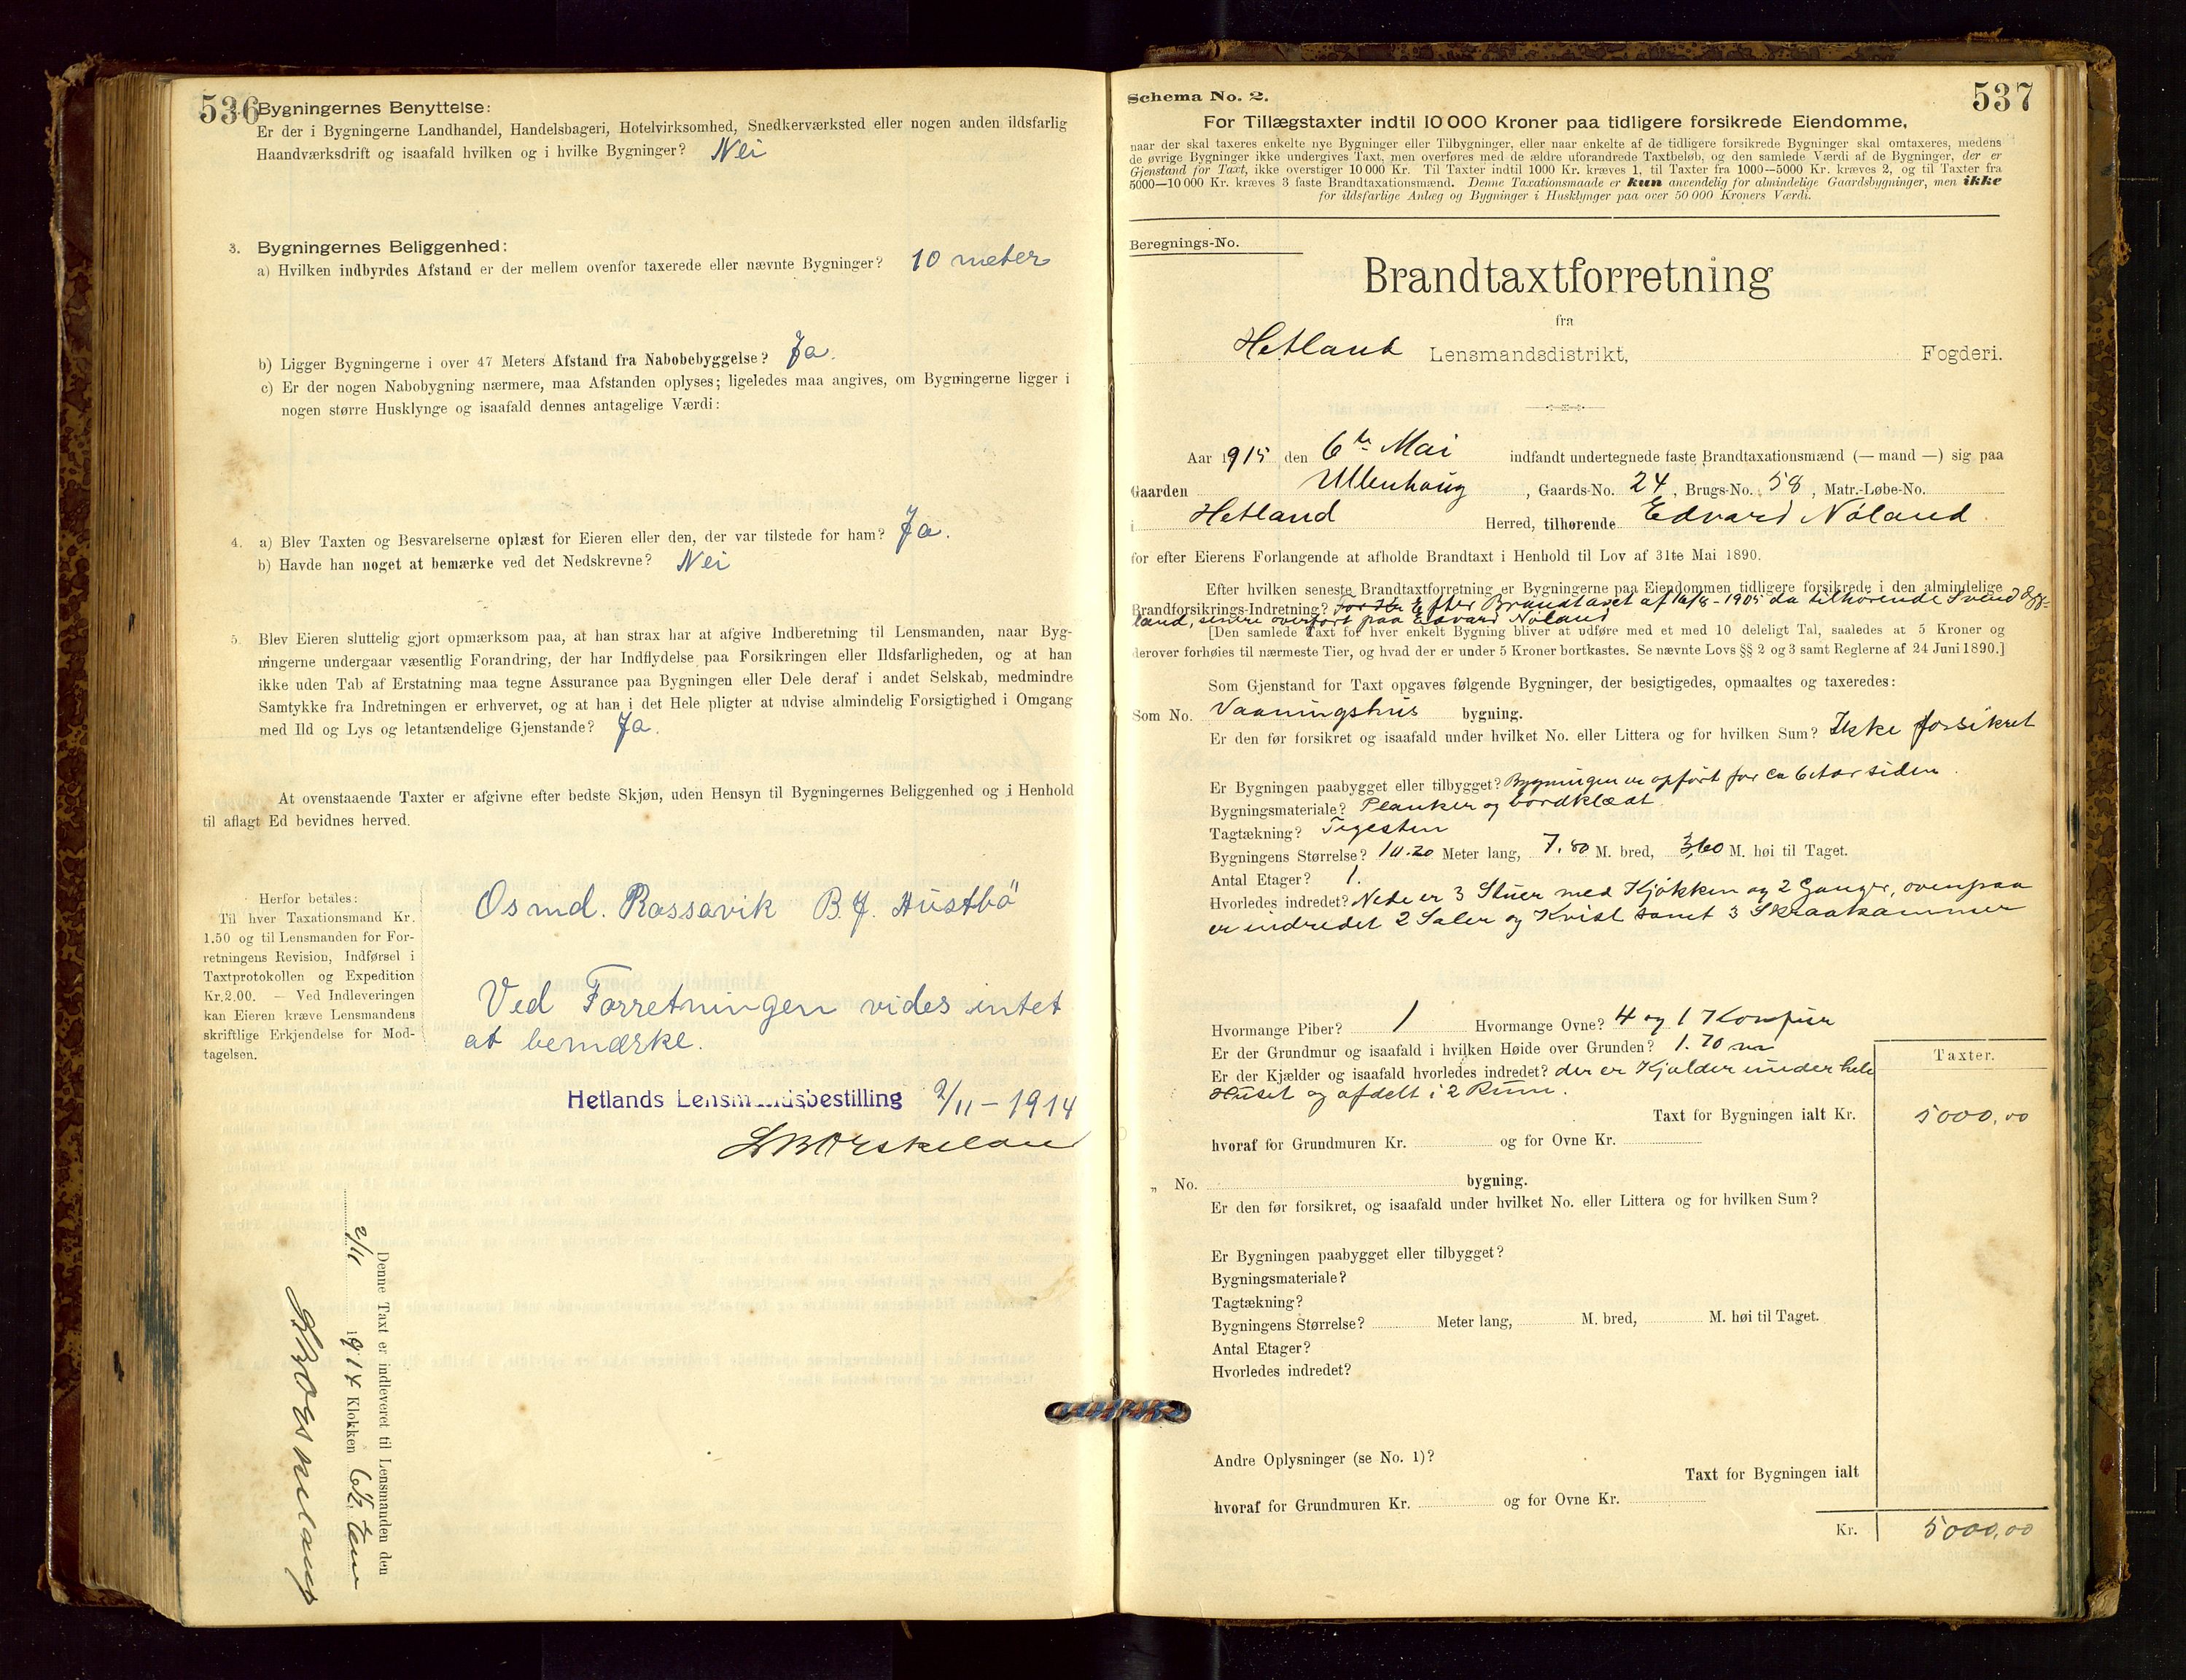 536
Bygningernes Benyttelse:
Er der i Bygningerne Landhandel, Handelsbageri, Hotelvirksomhed, Snedkerværksted eller nogen anden ildsfarlig
Haandværksdrift og isaafald hvilken og i hvilke Bygninger? Nei
3. Bygningernes Beliggenhed:
a) Hvilken indbyrdes Afstand er der mellem ovenfor taxerede eller nævnte Bygninger? 10 meter
b) Ligger Bygningerne i over 47 Meters Afstand fra Nabobebyggelse? Ja.
c) Er der nogen Nabobygning nærmere, maa Afstanden oplyses; ligeledes maa angives, om Bygningerne ligger i
nogen større Husklynge og isaafald dennes antagelige Værdi:
4. a) Blev Taxten og Besvarelserne oplæst for Eieren eller den, der var tilstede for ham? Ja.
b) Havde han noget at bemærke ved det Nedskrevne? Nei
5. Blev Eieren sluttelig gjort opmærksom paa, at han strax har at afgive Indberetning til Lensmanden, naar Byg-
ningerne undergaar væsentlig Forandring, der har Indflydelse paa Forsikringen eller Ildsfarligheden, og at han
ikke uden Tab af Erstatning maa tegne Assurance paa Bygningen eller Dele deraf i andet Selskab, medmindre
Samtykke fra Indretningen er erhvervet, og at han i det Hele pligter at udvise almindelig Forsigtighed i Omgang
med Ild og Lys og letantændelige Gjenstande? Ja.
At ovenstaaende Taxter er afgivne efter bedste Skjøn, uden Hensyn til Bygningernes Beliggenhed og i Henhold
til aflagt Ed bevidnes herved.
Herfor betales:
Til hver Taxationsmand Kr.
1.50 og til Lensmanden for For-
retningens Revision, Indførsel i
Taxtprotokollen og Expedition
Kr. 2.00. — Ved Indleveringen
kan Eieren kræve Lensmandens
skriftlige Erkjendelse for Mod-
tagelsen.
Osmd. Rossavik B. J. Austbö
Ved Forretningen vides intet
at bemærke.
Hetlands Lensmandsbestilling 2/11 - 1914
Denne Taxt er indleveret til Lensmanden den
2/11 1914 Klokken
537
Schema No. 2.
For Tillægstaxter indtil 10 000 Kroner paa tidligere forsikrede Eiendomme,
naar der skal taxeres enkelte nye Bygninger eller Tilbygninger, eller naar enkelte af de tidligere forsikrede Bygninger skal omtaxeres, medens
de øvrige Bygninger ikke undergives Taxt, men overføres med de ældre uforandrede Taxtbeløb, og den samlede Værdi af de Bygninger, der er
Gjenstand for Taxt, ikke overstiger 10 000 Kr. Til Taxter indtil 1000 Kr. kræves 1, til Taxter fra 1000—5000 Kr. kræves 2, og til Taxter fra
5000—10 000 Kr. kræves 3 faste Brandtaxationsmænd. Denne Taxationsmaade er kun anvendelig for almindelige Gaardsbygninger, men ikke
for ildsfarlige Anlæg og Bygninger i Husklynger paa over 50 000 Kroners Værdi.
Beregnings-No.
Brandtaxtforretning
fra
Hetland Lensmandsdistrikt, Fogderi.
Aar 1915 den 6te Mai indfandt undertegnede faste Brandtaxationsmænd (— mand —) sig paa
Gaarden Ullenhaug, Gaards-No. 24, Brugs-No. 58, Matr.-Løbe-No.
i Hetland Herred, tilhørende Edvard Nöland.
for efter Eierens Forlangende at afholde Brandtaxt i Henhold til Lov af 31te Mai 1890.
Efter hvilken seneste Brandtaxtforretning er Bygningerne paa Eiendommen tidligere forsikrede i den almindelige
Brandforsikrings-Indretning? Efter Brandtaxt af 16/8 - 1905 da tilhørende Svend Egge-
land, senere overført paa Edvard Nöland
[Den samlede Taxt for hver enkelt Bygning bliver at udføre med et med 10 deleligt Tal, saaledes at 5 Kroner og
derover forhøies til nærmeste Tier, og hvad der er under 5 Kroner bortkastes. Se nævnte Lovs §§ 2 og 3 samt Reglerne af 24 Juni 1890.]
Som Gjenstand for Taxt opgaves følgende Bygninger, der besigtigedes, opmaaltes og taxeredes:
Som No. Vaaningshus bygning.
Er den før forsikret og isaafald under hvilket No. eller Littera og for hvilken Sum? Ikke forsikret
Er Bygningen paabygget eller tilbygget? Bygningen er opført for ca 6 Aar siden.
Bygningsmateriale? Planker og bordklædt.
Tagtækning? Tegesten
Bygningens Størrelse? 10.20 Meter lang, 7.80 M. bred, 3,60 M. høi til Taget.
Antal Etager? 1.
Hvorledes indredet? Nede er 3 Stuer med Kjøkken og 2 Gange, ovenpaa
er indredet 2 Saler og Kvist samt 3 Skraakammer
Hvormange Piber? 1 Hvormange Ovne? 4 og 1 Komfur
Er der Grundmur og isaafald i hvilken Høide over Grunden? 1.70 m
Er der Kjælder og isaafald hvorledes indredet? der er Kjælder under hele
Huset og afdelt i 2 Rum.
Taxter.
Taxt for Bygningen ialt Kr. 5000,00
hvoraf for Grundmuren Kr. og for Ovne Kr.
„ No. bygning.
Er den før forsikret, og isaafald under hvilket No. eller Littera og for hvilken Sum?
Er Bygningen paabygget eller tilbygget?
Bygningsmateriale?
Tagtækning?
Bygningens Størrelse? Meter lang, M. bred, M. høi til Taget.
Antal Etager?
Hvorledes indredet?
Andre Oplysninger (se No. 1)?
Taxt for Bygningen ialt
hvoraf for Grundmuren Kr. og for Ovne Kr.
Kr. 5000,00